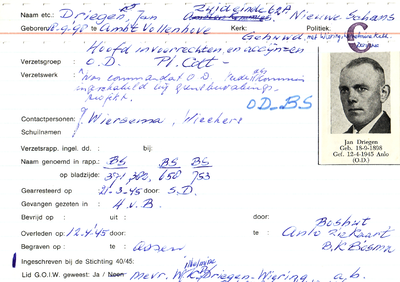 Naam etc.: Driegen, Jan Zuideinde 62A Nieuwe Schans
Geboren: 18-9-98 te Ambt Vollenhove Kerk: Politiek:
Gehuwd, met Wiering,
Hoofd invoerrechten en accijnzen
Verzetsgroep : O.D. Pl. Cdt -
Verzetswerk : Was commandant O.D.
ingeschakeld bij
projekt.
O.D-BS
Contactpersonen: J. Wiersema, Wiechers
Schuilnamen :
Verzetsrapp. ingel. dd. : bij:
Naam genoemd in rapp.: BS BS BS
op bladzijde: 650 753
Gearresteerd op : 21-3-45 door: S.D.
Gevangen gezeten in : H.v.B.
Bevrijd op : uit : door:
Overleden op : 12.4.'45 te : Anlo door:
Begraven op : te : Assen
Ingeschreven bij de Stichting 40/45:
Lid G.O.I.W. geweest: Ja / Neen mevr. W.K. Driegen-Wiering a.b.
Jan Driegen
Geb. 18-9-1898
Gef. 12-4-1945 Anlo
(O.D.)